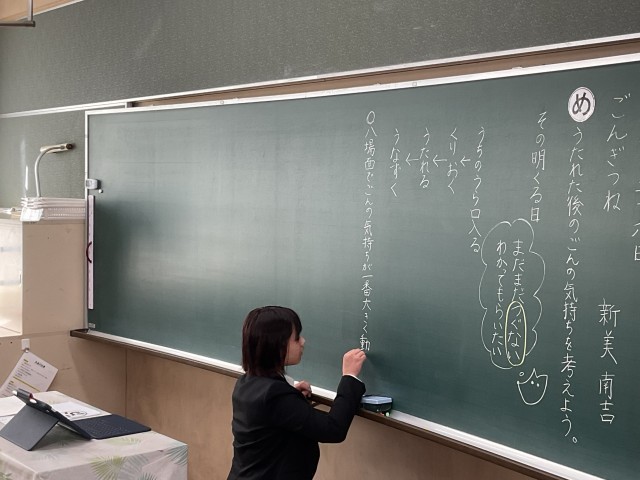 ごんぎつね　新美 南吉
め うたれた後のごんの気持ちを考えよう。
その明くる日
まだまだつぐない
わかってもらいたい
うちのうら口入る
←
くりおく
←
うたれる
←
うなずく
○八場面でごんの気持ちが一番大きく動